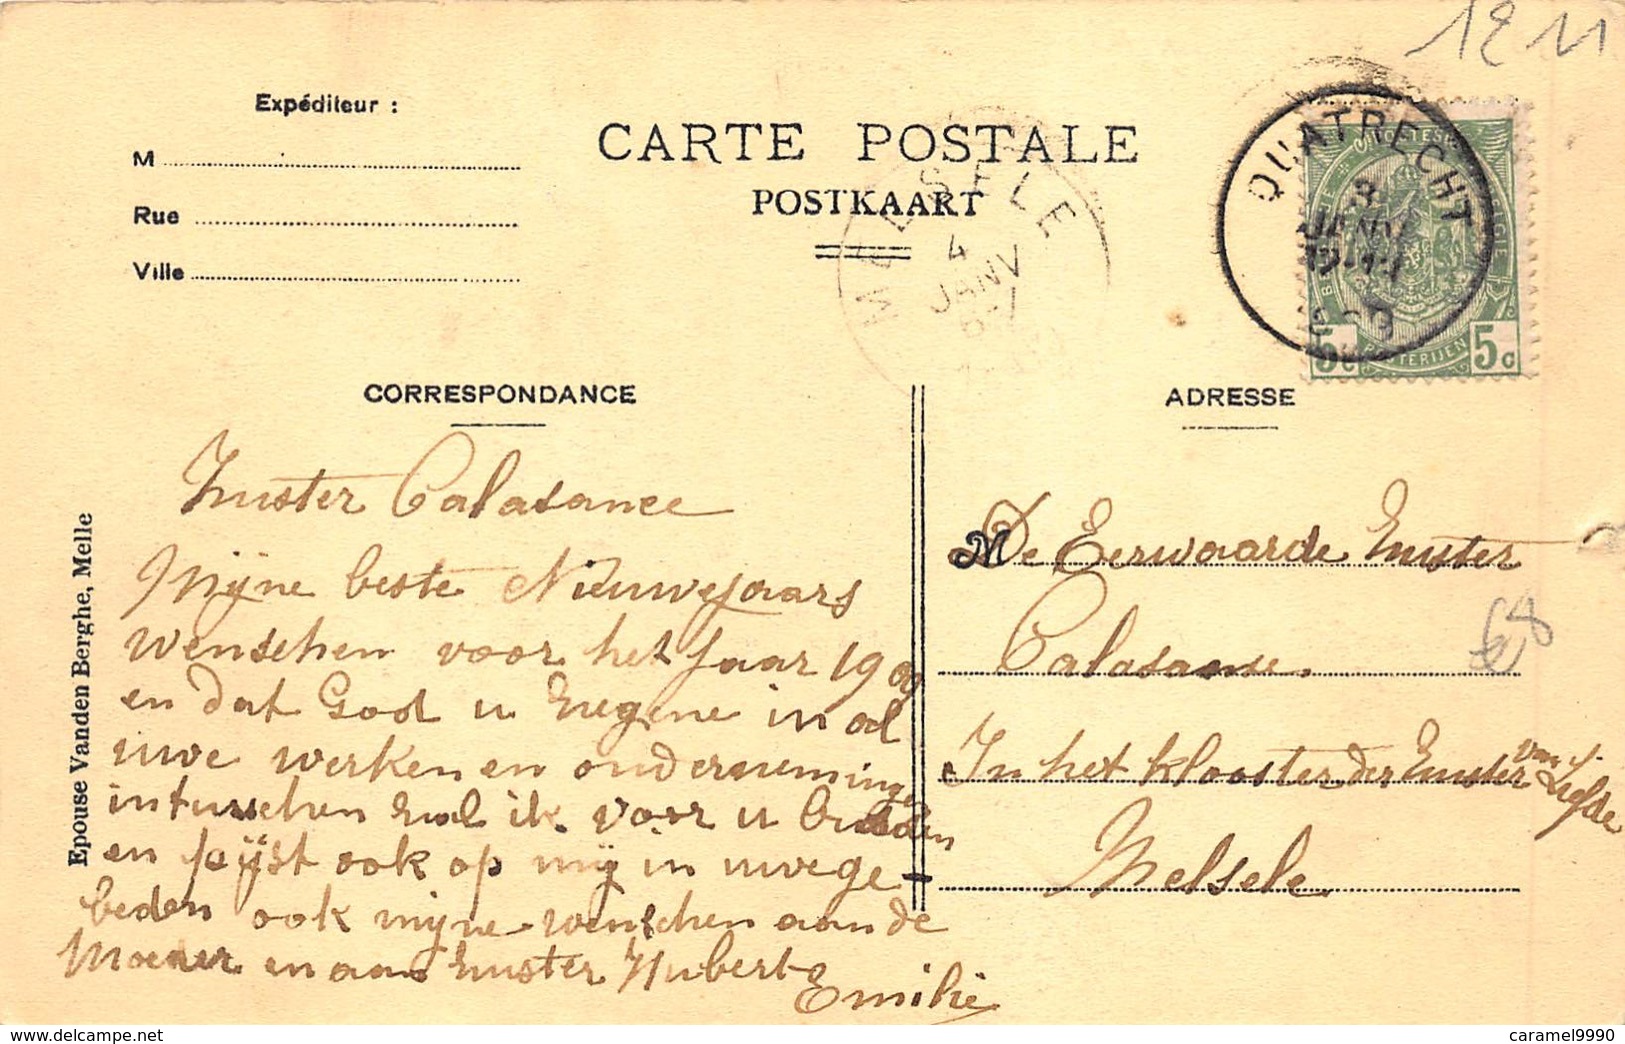 12 11
Expéditeur :
M
Rue
Ville
CARTE POSTALE
POSTKAART
MELSELE
4
JANV
QUATRECHT
3
JANV
BELGIE
POSTERIJEN
5c 5c
CORRESPONDANCE
ADRESSE
Epouse Vanden Berghe, Melle
Zuster Calasance
Mijne beste Nieuwejaars
wenschen voor het Jaar 1909
en dat God u zegene in al
uwe werken en ondernemingen
intusschen zal ik voor u bidden
en peijst ook op mij in uwe ge-
beden ook mijne wenschen aan de
Moeder en aan zuster Huberta
Emilie
De Eerwaarde Zuster
Calasanse.
In het klooster der Zuster van Liefde
Melsele
€8
www.delcampe.net
caramel9990